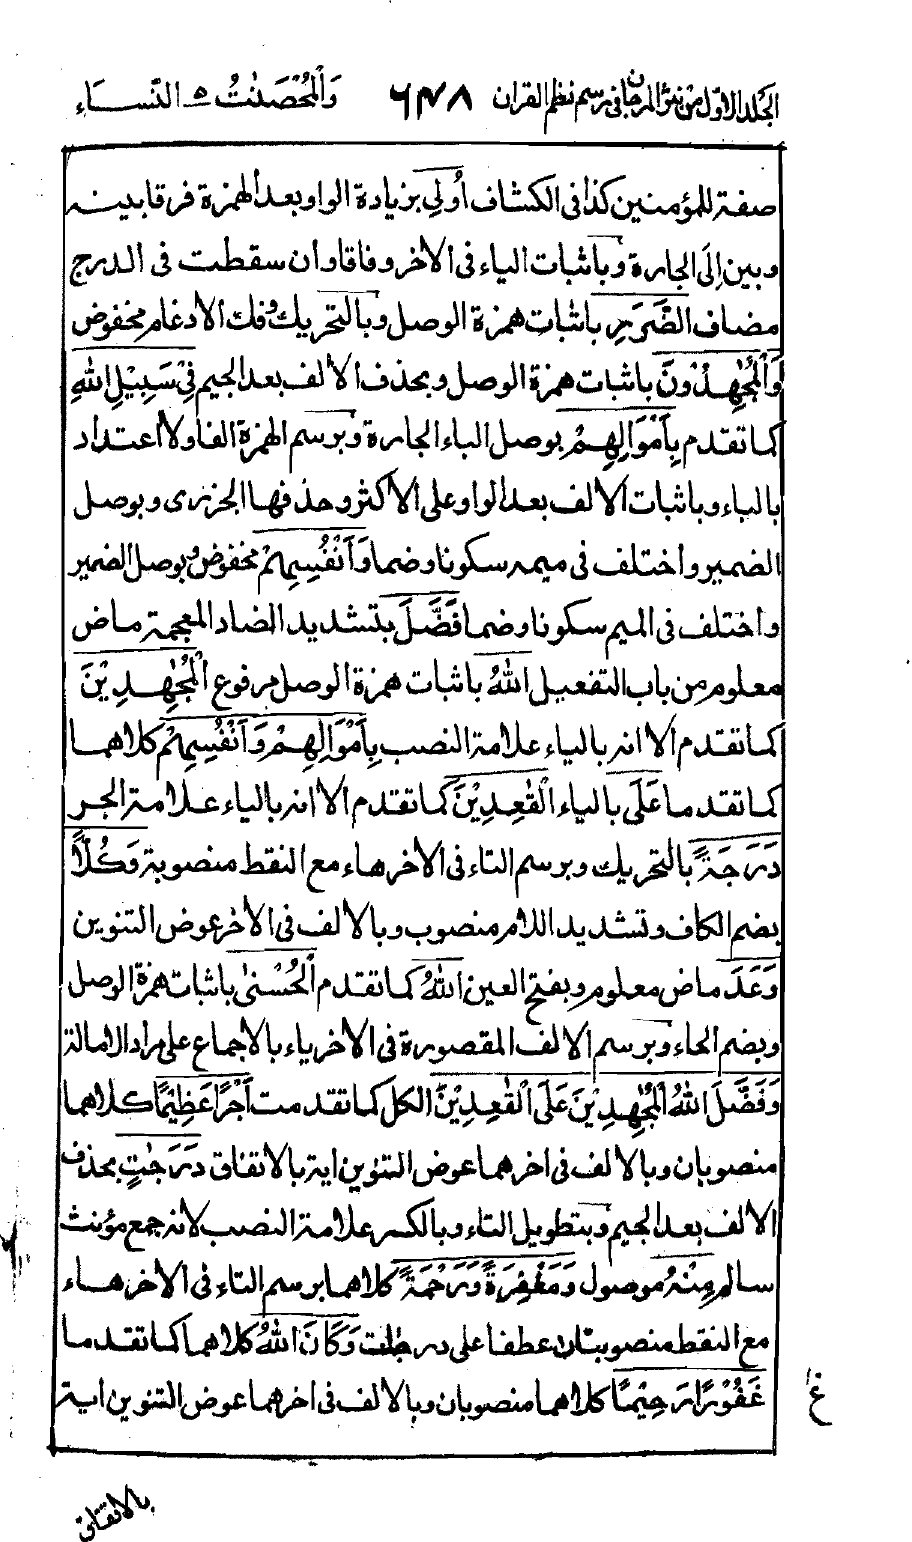 الجلد الاول من نثر المرجان فی رسم نظم القران ٦٤٨ وَالْمُحْصَنٰتُ ٥ النِّسَاء
صفة للمؤمنين كذا فى الكشاف اُولِی بزيادة الواو بعد الهمزة فرقا بينه
وبين اِلَى الجارة وباثبات الياء فى الاخر وفاقا وان سقطت فى الدرج
مضاف الضَّرَرِ باثبات همزة الوصل وبالتحريك وفك الادغام مخفوض
وَالْمُجٰهِدُوْنَ باثبات همزة الوصل وبحذف الالف بعد الجيم فِیْ سَبِيْلِ اللهِ
كما تقدم بِاَمْوَالِهِمْ بوصل الباء الجارة وبرسم الهمزة الفا ولا اعتداد
بالباء وباثبات الالف بعد الواو على الاكثر وحذفها الجزری وبوصل
الضمير واختلف فى ميمه سكونا وضما وَاَنْفُسِهِمْ مخفوض وبوصل الضمير
واختلف فى الميم سكونا وضما فَضَّلَ بتشديد الضاد المعجمة ماض
معلوم من باب التفعيل اللهُ باثبات همزة الوصل مرفوع الْمُجٰهِدِيْنَ
كما تقدم الا انه بالياء علامة النصب بِاَمْوَالِهِمْ وَاَنْفُسِهِمْ كلاهما
كما تقدما عَلَى بالياء الْقٰعِدِيْنَ كما تقدم الا انه بالياء علامة الجر
دَرَجَةً بالتحريك وبرسم التاء فى الاخر هاء مع النقط منصوبة وَكُلًّا
بضم الكاف وتشديد اللام منصوب وبالالف فى الاخر عوض التنوين
وَعَدَ ماض معلوم وبفتح العين اللهُ كما تقدم الْحُسْنٰى باثبات همزة الوصل
وبضم الحاء وبرسم الالف المقصورة فى الاخر ياء بالاجماع على مراد الامالة
وَفَضَّلَ اللهُ الْمُجٰهِدِيْنَ عَلَى الْقٰعِدِيْنَ الكل كما تقدمت اَجْرًا عَظِيْمًا كلاهما
منصوبان وبالالف فى اخرهما عوض التنوين اية بالاتفاق دَرَجٰتٍ بحذف
الالف بعد الجيم وبتطويل التاء وبالكسر علامة النصب لانه جمع مؤنث
سالم مِنْهُ موصول وَمَغْفِرَةً وَّرَحْمَةً كلاهما برسم التاء فى الاخر هاء
مع النقط منصوبتان عطفا على درجات وَكَانَ اللهُ كلاهما كما تقدما
غَفُوْرًا رَّحِيْمًا كلاهما منصوبان وبالالف فى اخرهما عوض التنوين اية
بالاتفاق